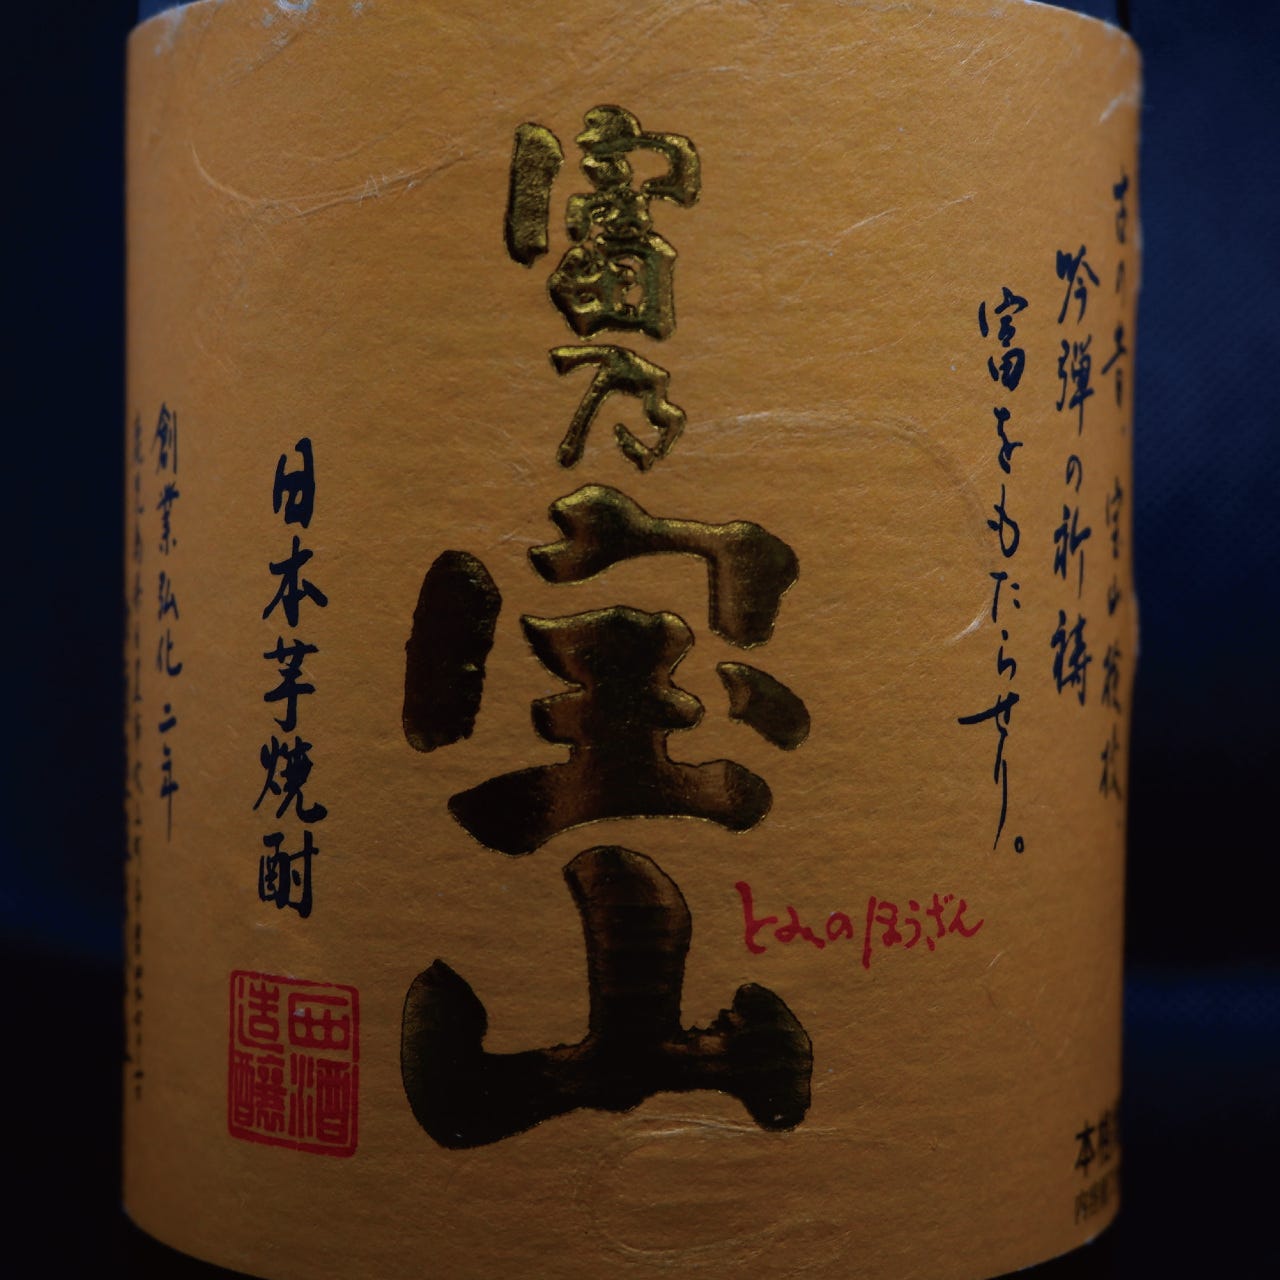 富乃宝山
とみのほうざん
吟弾の祈祷
富をもたらせり。
日本芋焼酎
創業弘化二年
西酒
造醸
本格